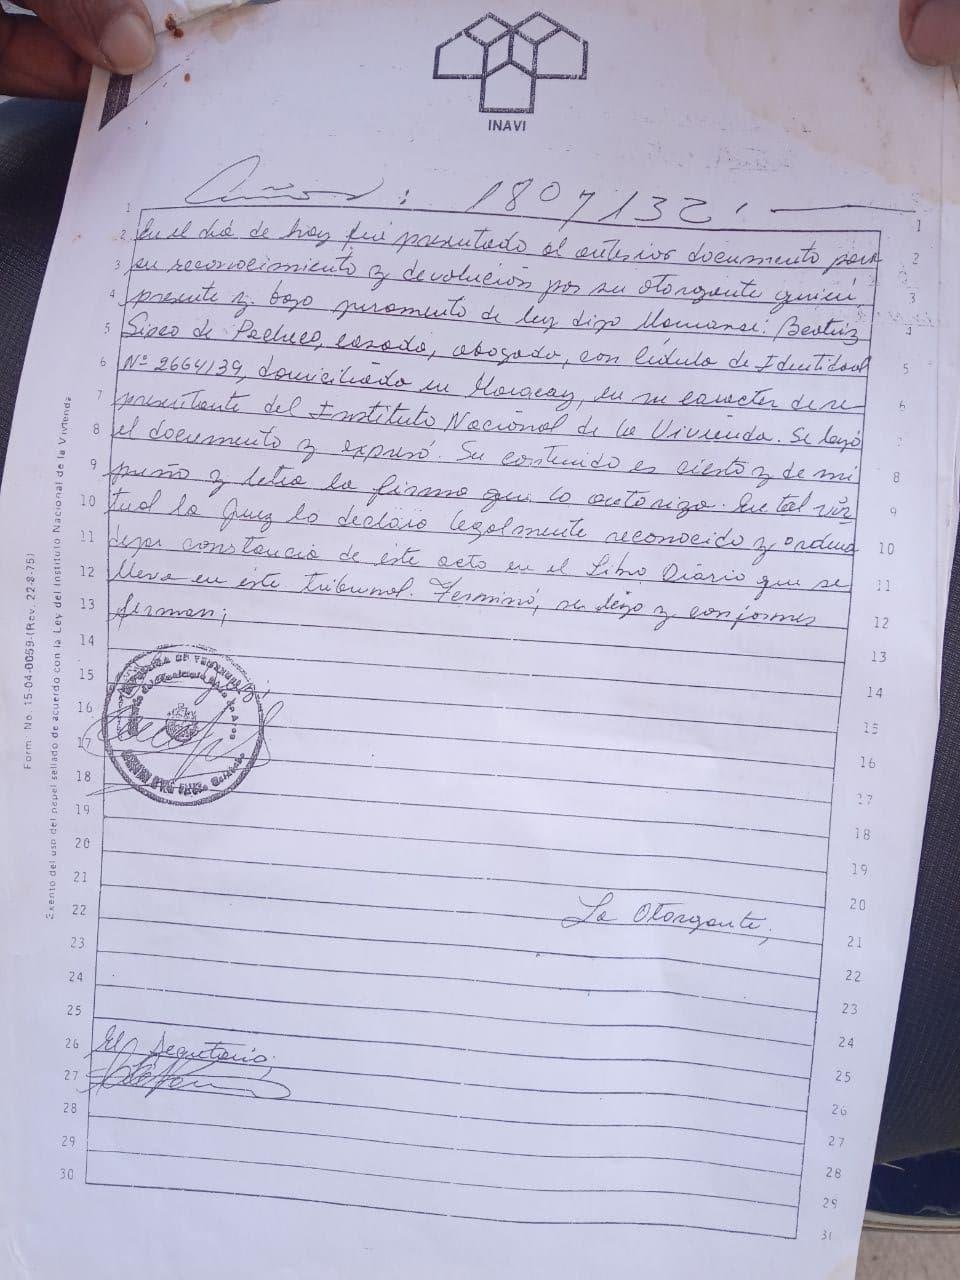 INAVI
: 1807132.
En el día de hoy fué presentado el anterior documento para
su reconocimiento y devolución por su otorgante quien,
presente y bajo juramento de ley dijo llamarse: Beatriz
de Pacheco, casada, abogado, con Cédula de Identidad
Nº 2664139, domiciliada en Maracay, en su caracter de re
presentante del Instituto Nacional de la Vivienda. Se leyó
el documento y expuso. Su contenido es cierto y de mi
puño y letra la firma que lo autoriza. En tal vir
tud la Juez lo declara legalmente reconocido y ordena
dejar constancia de este acto en el Libro Diario que se
lleva en este tribunal. Terminó, se leyó y conformes
firman;
La Otorgante,
El Secretario,
Form. No. 15-04-0059-(Rev. 22-8-75)
Exento del uso del papel sellado de acuerdo con la Ley del Instituto Nacional de la Vivienda
1
2
3
4
5
6
7
8
9
10
11
12
13
14
15
16
17
18
19
20
21
22
23
24
25
26
27
28
29
30
1
2
3
4
5
6
7
8
9
10
11
12
13
14
15
16
17
18
19
20
21
22
23
24
25
26
27
28
29
31